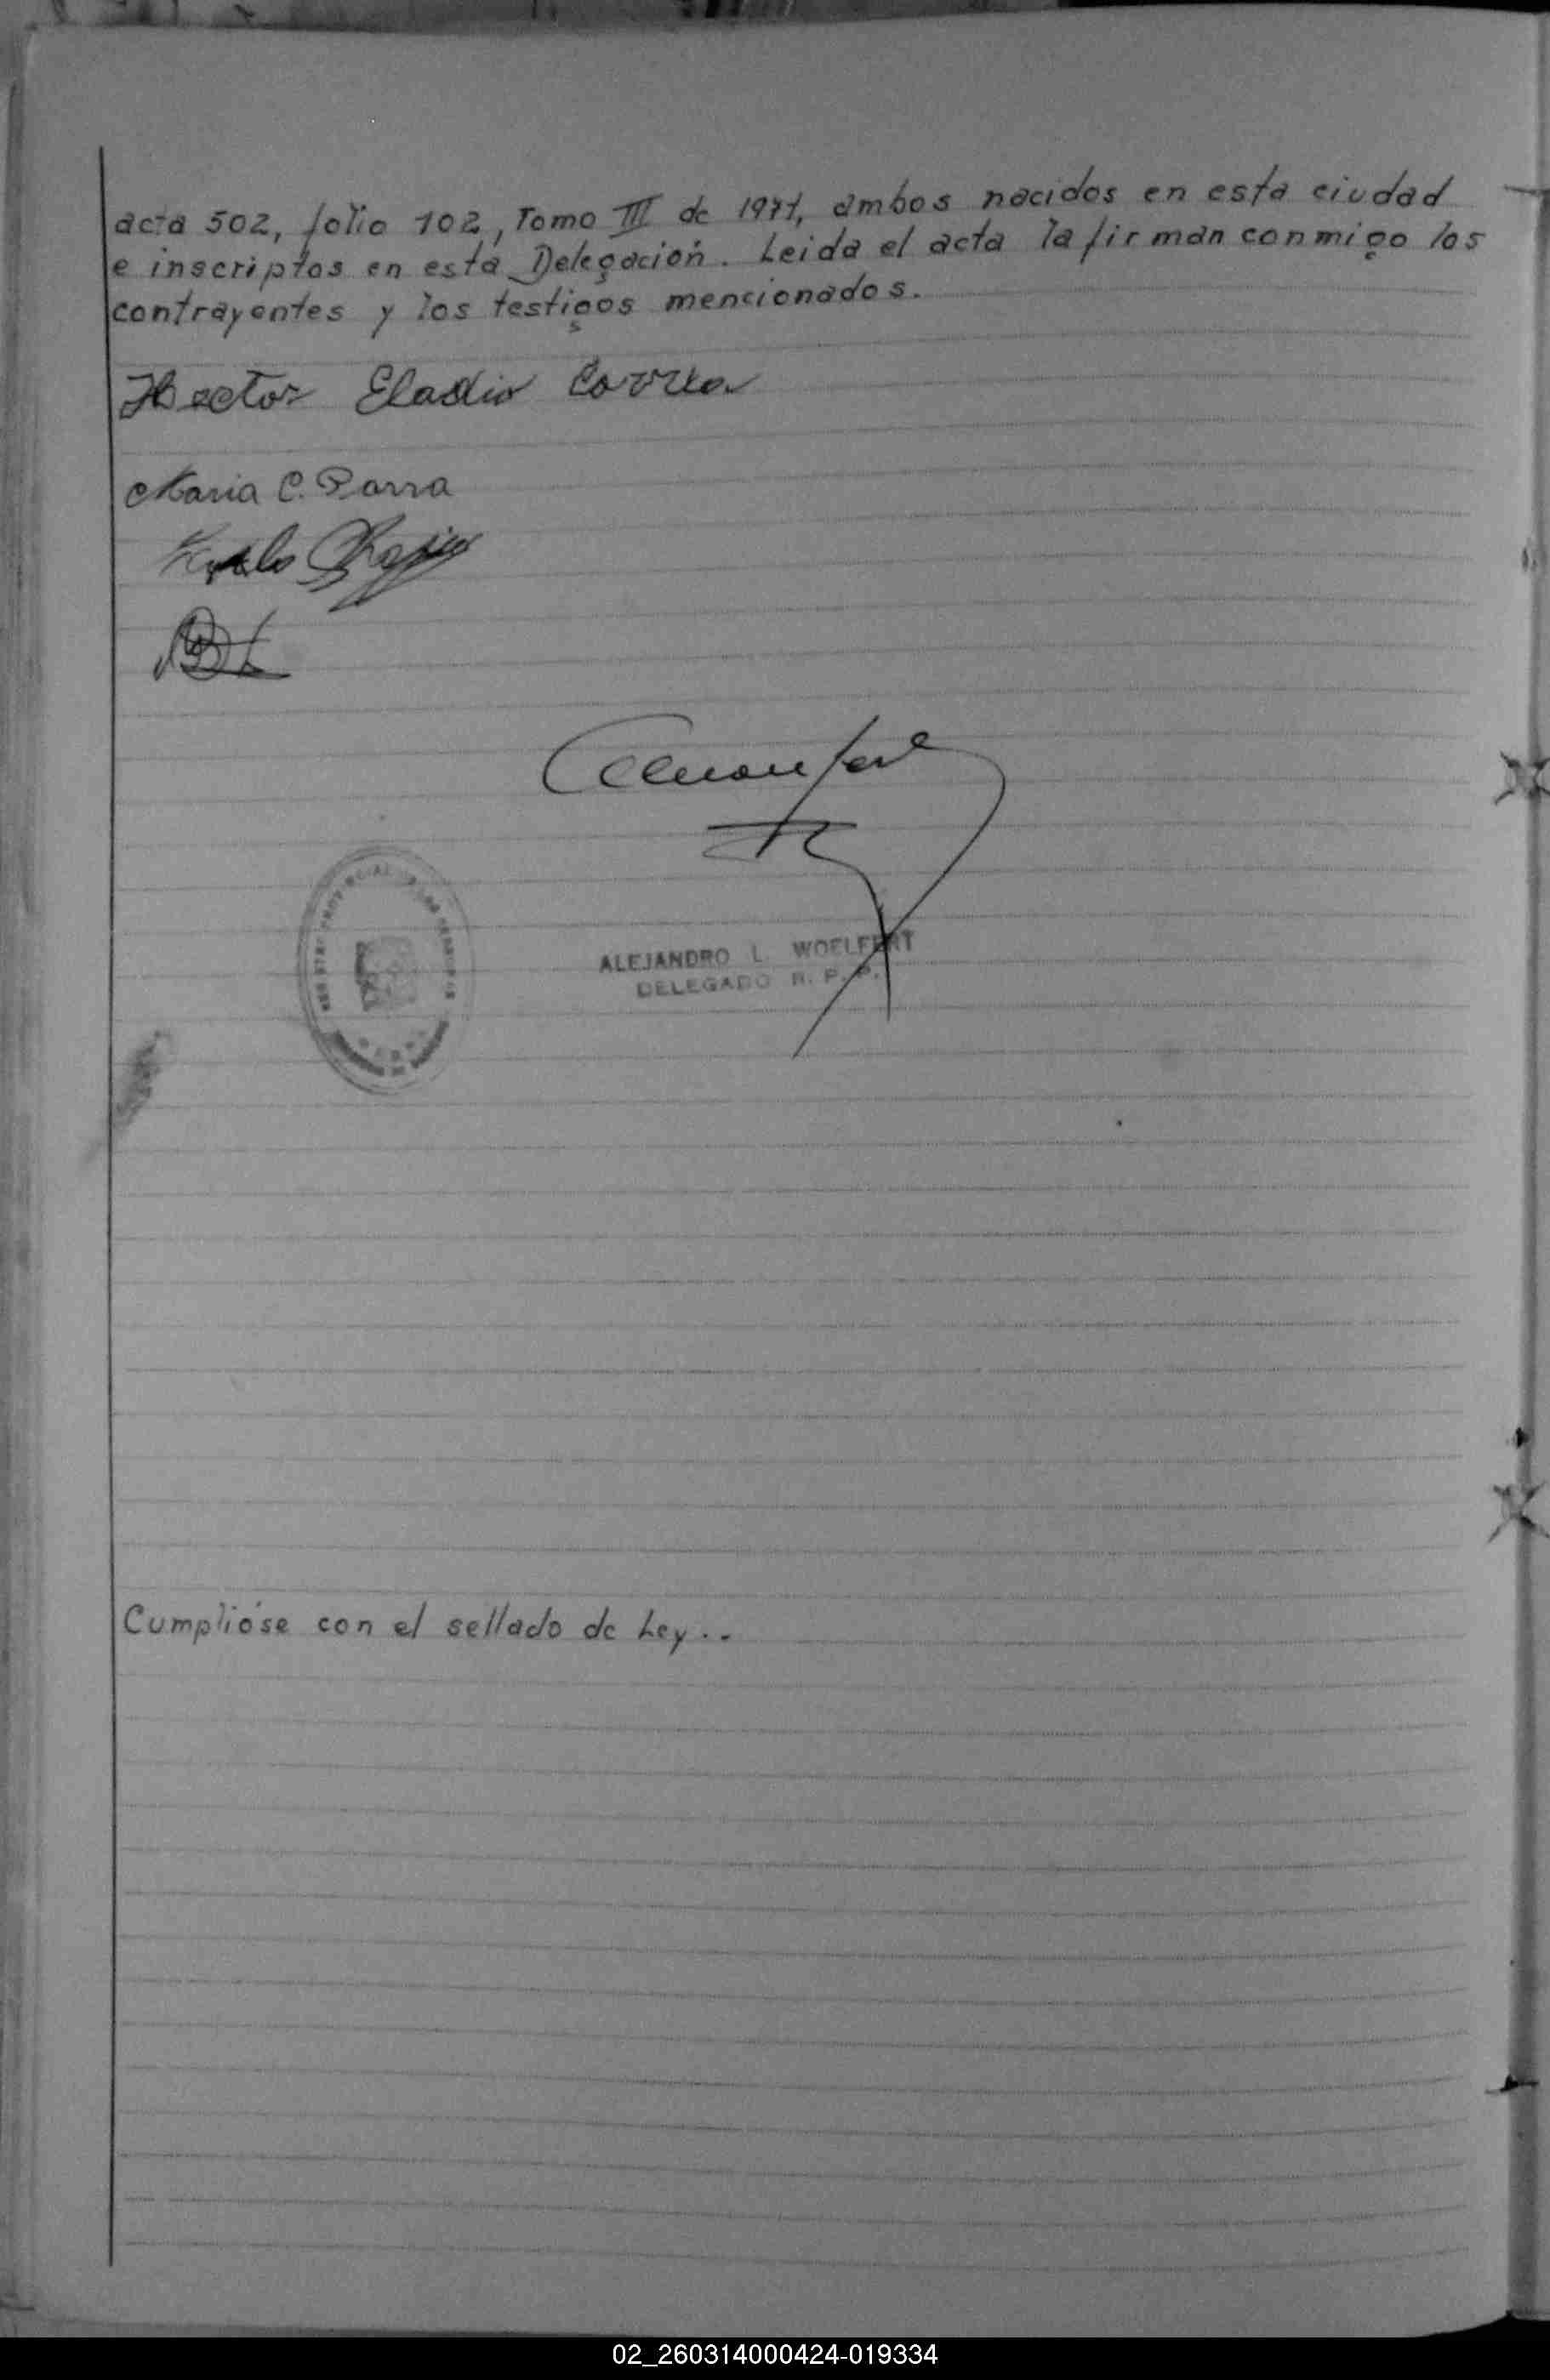 acta 502, folio 102, Tomo III de 1971, ambos nacidos en esta ciudad
e inscriptos en esta Delegación. Leida el acta la firman conmigo los
contrayentes y los testigos mencionados.
Hector Eladio Correa
Maria C. Parra
ALEJANDRO L. WOELFERT
DELEGADO R. P. P.
Cumplióse con el sellado de Ley..
02_260314000424-019334